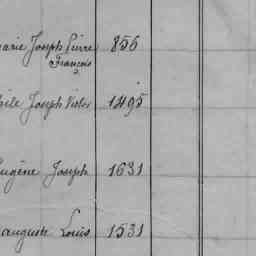 Marie Joseph Pierre 856
François
Joseph Victor 1495
Eugène Joseph 1631
Auguste Louis 1531